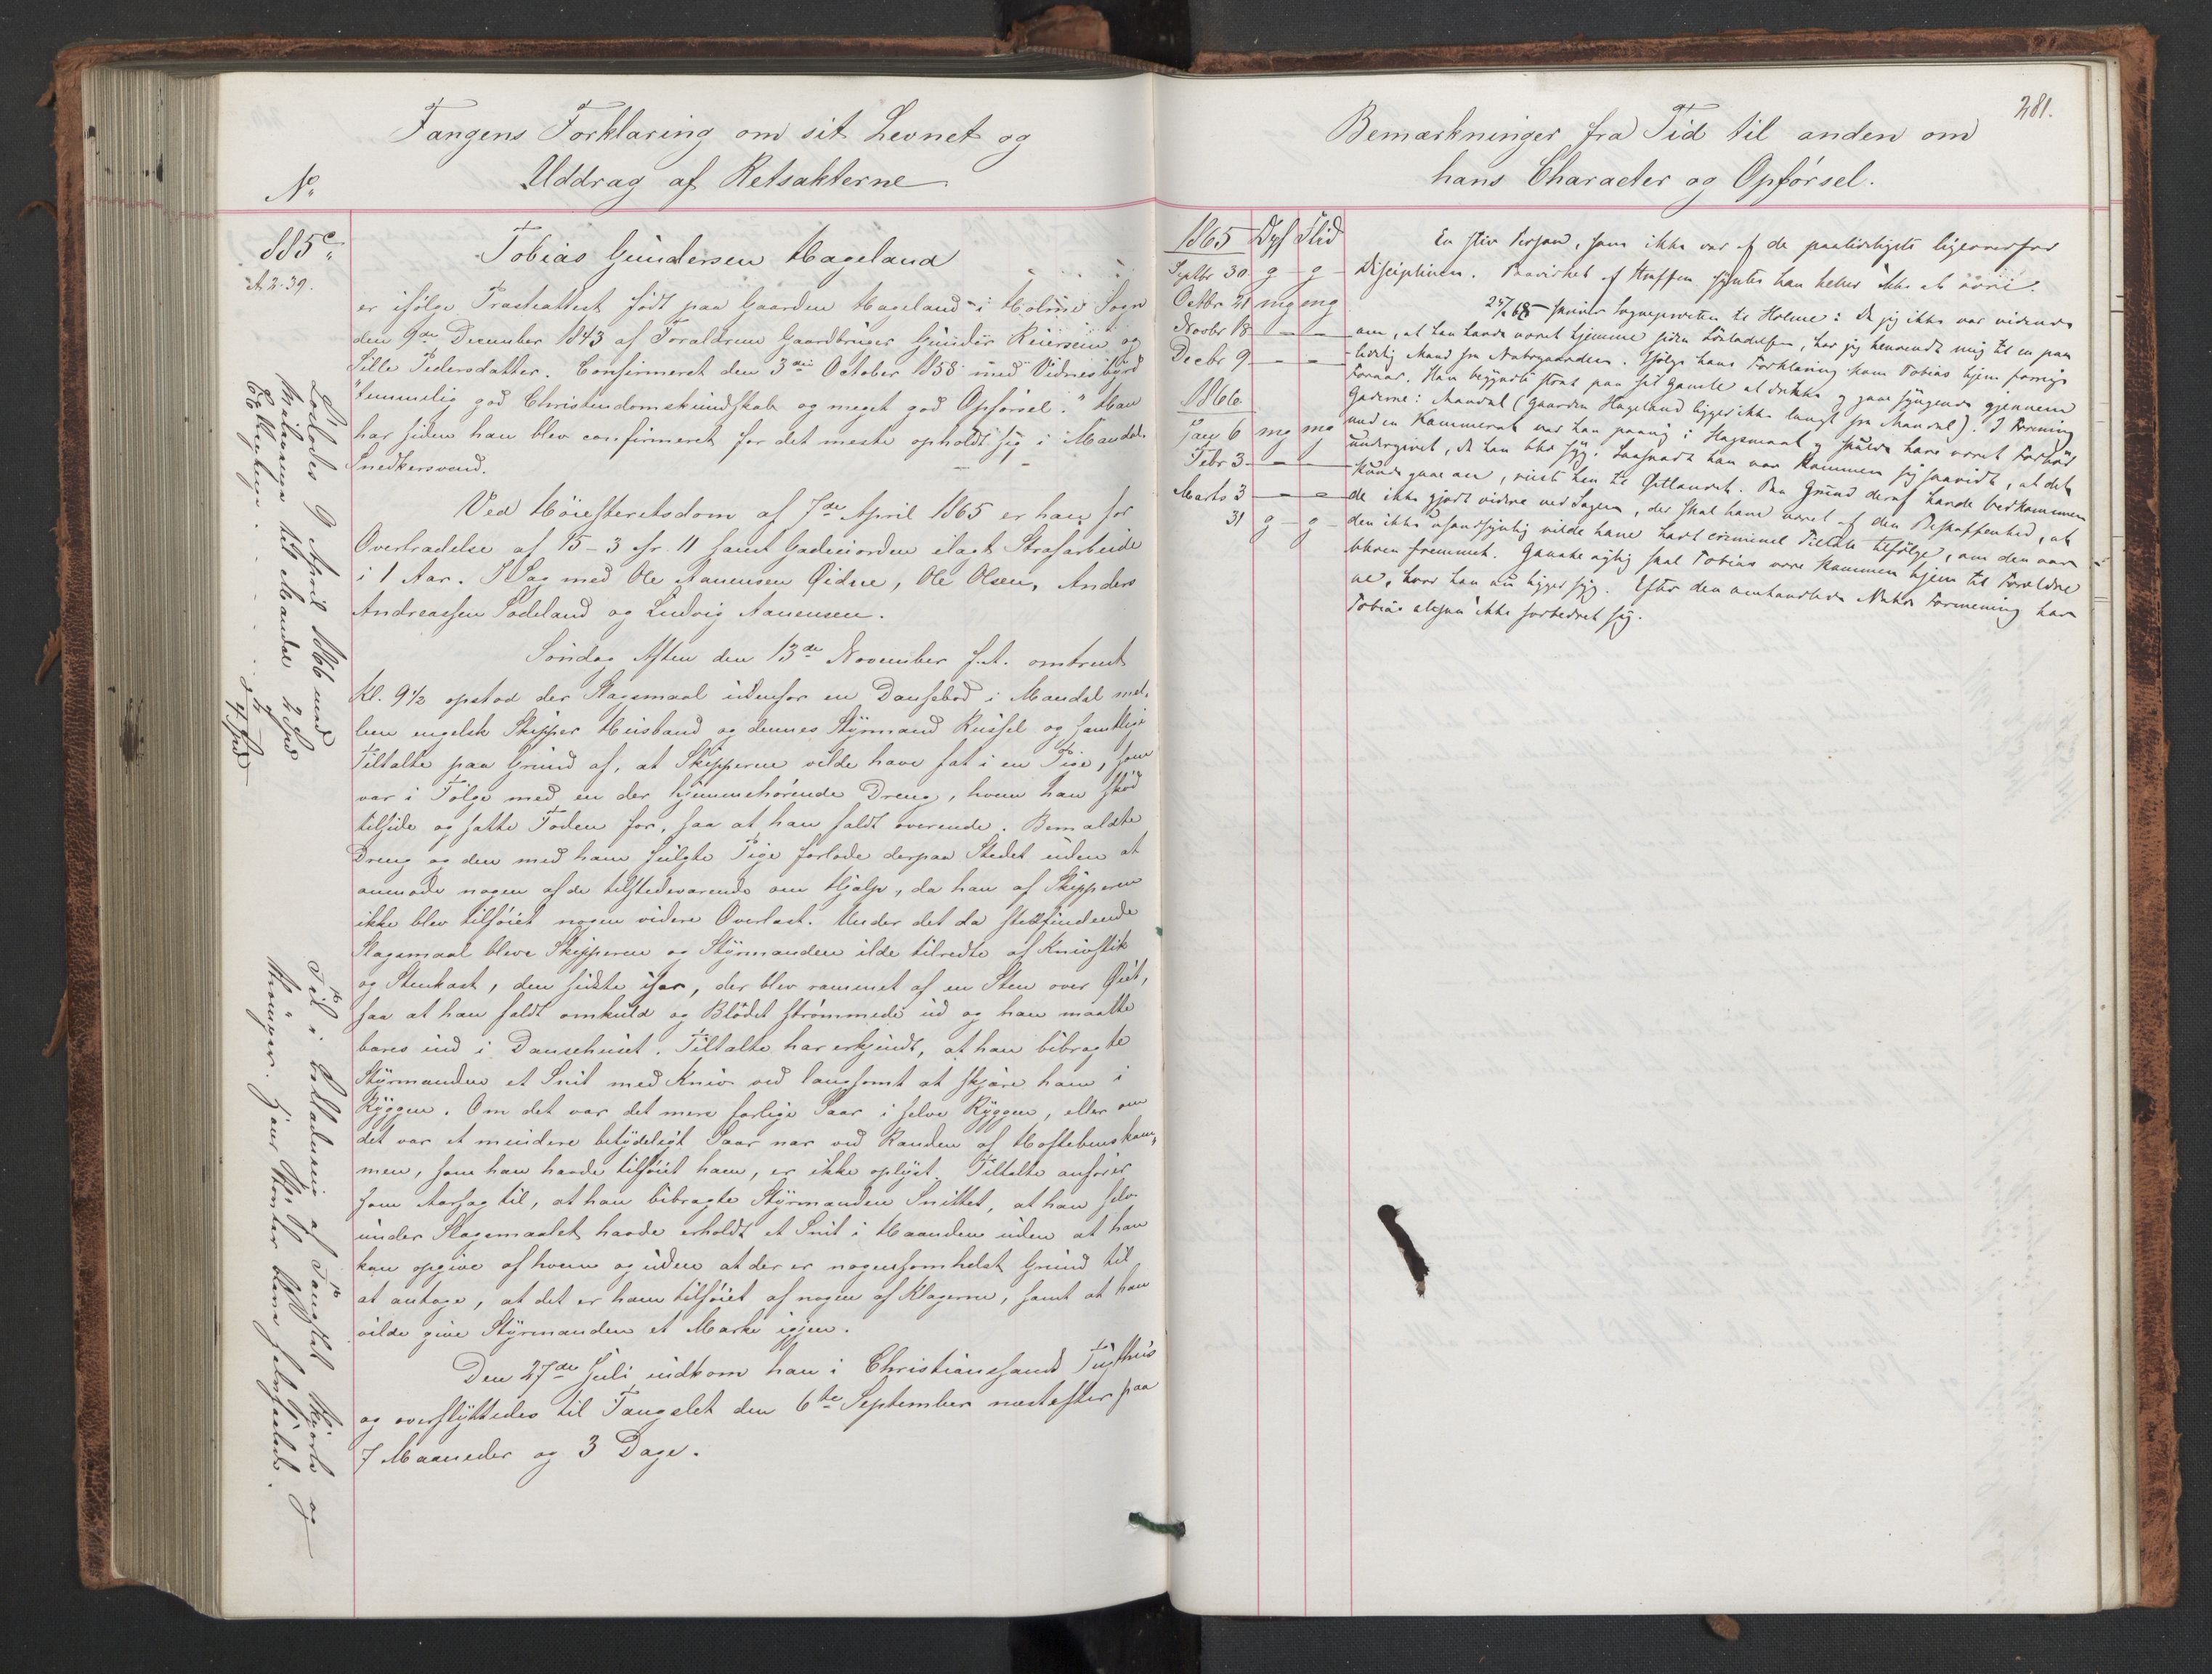 Fangens Forklaring om sit Levnet og
Uddrag af Retsakterne
No
885c
A. 2-39.
Tobias Gundersen Hageland
er ifølge Præsteattest født paa Gaarden Hageland i Holme Sogn
den 9de December 1843 af Forældrene Gaardbruger Gunder Reiersen og
Sille Pedersdatter. Confirmeret den 3die October 1858 med Vidnesbyrd
"temmelig god Christendomskundskab og meget god Opførsel." Han
har siden han blev confirmeret for det meste opholdt sig i Mandal.
Snedkersvend.
Ved Høiesteretsdom af 7de April 1865 er han for
Overtrædelse af 15-3 cfr. 11 samt Gadeuorden ilagt Strafarbeide
i 1 Aar. I Sag med Ole Aanensen Øidne, Ole Olsen, Anders
Andreassen Sodeland og Ludvig Aanensen.
Søndag Aften den 13de November f.A. omtrent
Kl. 9½ opstod der Slagsmaal udenfor en Dansebod i Mandal mel-
lem engelsk Skipper Husband og dennes Styrmand Russel og samtlige
Tiltalte paa Grund af, at Skipperen vilde have fat i en Pige, som
var i Følge med en der hjemmehørende Dreng, hvem han skjød
tilside og satte Foden for, saa at han faldt overende. Bemeldte
Dreng og den med ham fulgte Pige forlode derpaa Stedet uden at
anmode nogen af de tilstedeværende om Hjælp, da han af Skipperen
ikke blev tilføiet nogen videre Overlast. Under det da stedfindende
Slagsmaal bleve Skipperen og Styrmanden ilde tilredte af Knivstik
og Stenkast, den sidste især, der blev rammet af en Sten over Øiet,
saa at han faldt omkuld og Blodet strømmede ud og han maatte
bæres ind i Dansehuset. Tiltalte har erkjendt, at han bibragte
Styrmanden et Snit med Kniv ved langsomt at skjære ham i
Ryggen. Om det var det mere farlige Saar i selve Ryggen, eller om
det var et mindre betydeligt Saar nær ved Randen af Hoftebenskam-
men, som han havde tilføiet ham, er ikke oplyst. Tiltalte anfører
som Aarsag til, at han bibragte Styrmanden Snittet, at han selv
under Slagsmaalet havde erholdt et Snit i Haanden uden at han
kan opgive af hvem og uden at der er nogensomhelst Grund til
at antage, at det er ham tilføiet af nogen af Klagerne, samt at han
vilde give Styrmanden et Mærke igjen.
Den 27de Juli indkom han i Christianssands Tugthus
og overflyttedes til Fængslet den 6te September næstefter paa
7 Maaneder og 3 Dage.
Løslodes 9 April 1866 med
Milepenge til Mandal 2 Spd
Til i Løsladning af Fængslet Skjorte og
281.
Bemærkninger fra Tid til anden om
hans Character og Opførsel.
1865 Opf Flid
Septbr 30. g - g -
Octbr 21 mg mg
Novbr 18 — —
Decbr 9 — —
1866
Jany 6 mg mg
Febr 3. — —
Marts 3 — —
31 g - g -
En stiv Person, som ikke var af de paalideligste ligeoverfor
Disciplinen. Paavirket af Straffen syntes han heller ikke at være.
skriver Sognepresten til Holme: Da jeg ikke var vidende
om, at han havde været hjemme siden Løsladelsen, har jeg henvendt mig til en paa-
lidelig Mand fra Nabogaarden. Ifølge hans Forklaring kom Tobias hjem forrige
Foraar. Han begyndte strax paa sit gamle at drikke og gaae syngende gjennem
Gaderne i Mandal (Gaarden Hageland ligger ikke langt fra Mandal). I Forening
med en Kammerat var han paany i Slagsmaal og skulde have været Forhør
undergivet, da han blev syg. Saasnart han var kommen sig saavidt, at det
kunde gaae an, reiste han til Østlandet. Paa Grund deraf havde Vedkommende
de ikke gjort videre ved Sagen, der skal have været af den Beskaffenhed, at
den ikke usandsynlig vilde have havt criminel Tiltale tilfølge, om den var
bleven fremmet. Ganske nylig skal Tobias være kommen hjem til Forældre
ne, hvor han nu ligger syg. Efter den omhandlede Mands Formening har
Tobias altsaa ikke forbedret sig.